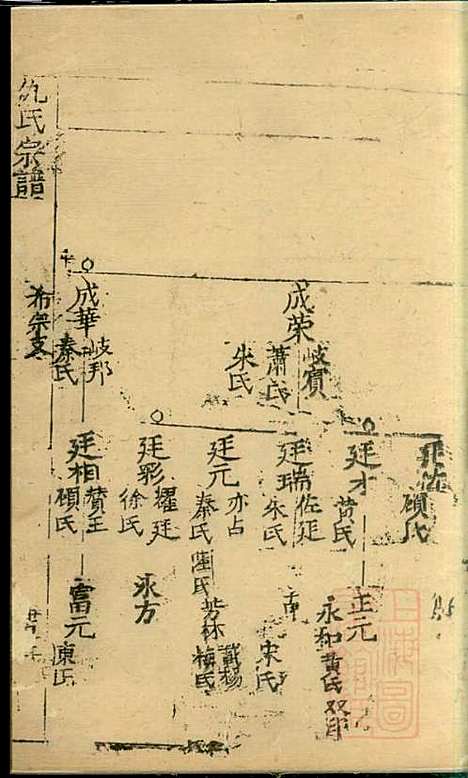 仇氏宗譜
成榮
岐賓
蕭氏
朱氏
成華
岐邦
秦氏
希宗支
碩氏
廷才
黄氏
廷瑞
佐廷
朱氏
廷元
亦占
秦氏
陸氏
廷彩
耀廷
徐氏
廷相
贊王
碩氏
正元
永和
黄氏
宋氏
芳林
梅氏
永方
富元
東氏